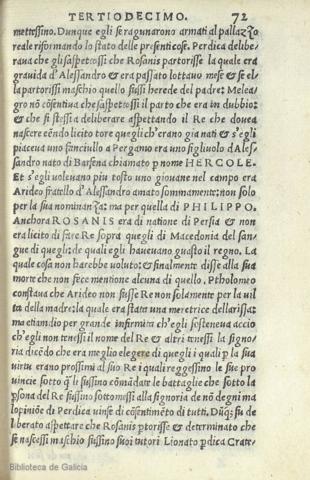 TERTIODECIMO. 72
mettessino. Dunque egli se ragunarono armati al pallazzo
reale riformando lo stato delle presenti cose. Perdica delibe-
raua che gli saspettassi che Rosanis partorisse la quale era
grauida d'Alessandro & era passato lottauo mese & se el-
la partorissi maschio quello fussi herede del padre: Melea-
gro nō cōsentiua che saspettassi il parto che era in dubbio:
& che si stessi a deliberare aspettando il Re che douea
nascere cēndo licito torre quegli ch'erano gia nati & s'egli
piaceua uno fanciullo a Pergamo era uno figliuolo dAles-
sandro nato di Barsena chiamato p nome HERCOLE.
Et s'egli voleuano piu tosto uno giouane nel campo era
Arideo fratello d'Alessandro amato sommamente: non solo
per la sua nominanza: ma per quella di PHILIPPO.
Anchora ROSANIS era di natione di Persia & non
era licito di fare Re sopra quegli di Macedonia del san-
gue di quegli: de quali egli haueuano guasto il regno. La
quale cosa non harebbe voluto: & finalmente disse alla sua
morte che non fece mentione alcuna di quello. Ptholomeo
constaua che Arideo non fusse Re non solamente per la vil
ta della madre: la quale era stata una meretrice dellarissa:
ma etiamdio per grande infirmita ch'egli sosteneua accio
ch'egli non tenessi il nome del Re & altri tenessi la signo-
ria dicēdo che era meglio elegere di quegli i quali p la sua
virtu erano prossimi al suo Re i quali reggessino le sue pro
uincie sotto q̄ li fussino cōmādate le battaglie che sotto la
psona del Re fussino sottomessi alla signoria de nō degni ma
lopiniōe di Perdica uinse di cōsentimēto di tutti. Dūq; su de
liberato aspettare che Rosanis ptorisse & determinato che
se nascessi maschio fussino suoi tutori Lionato pdica Crate-
Biblioteca de Galicia